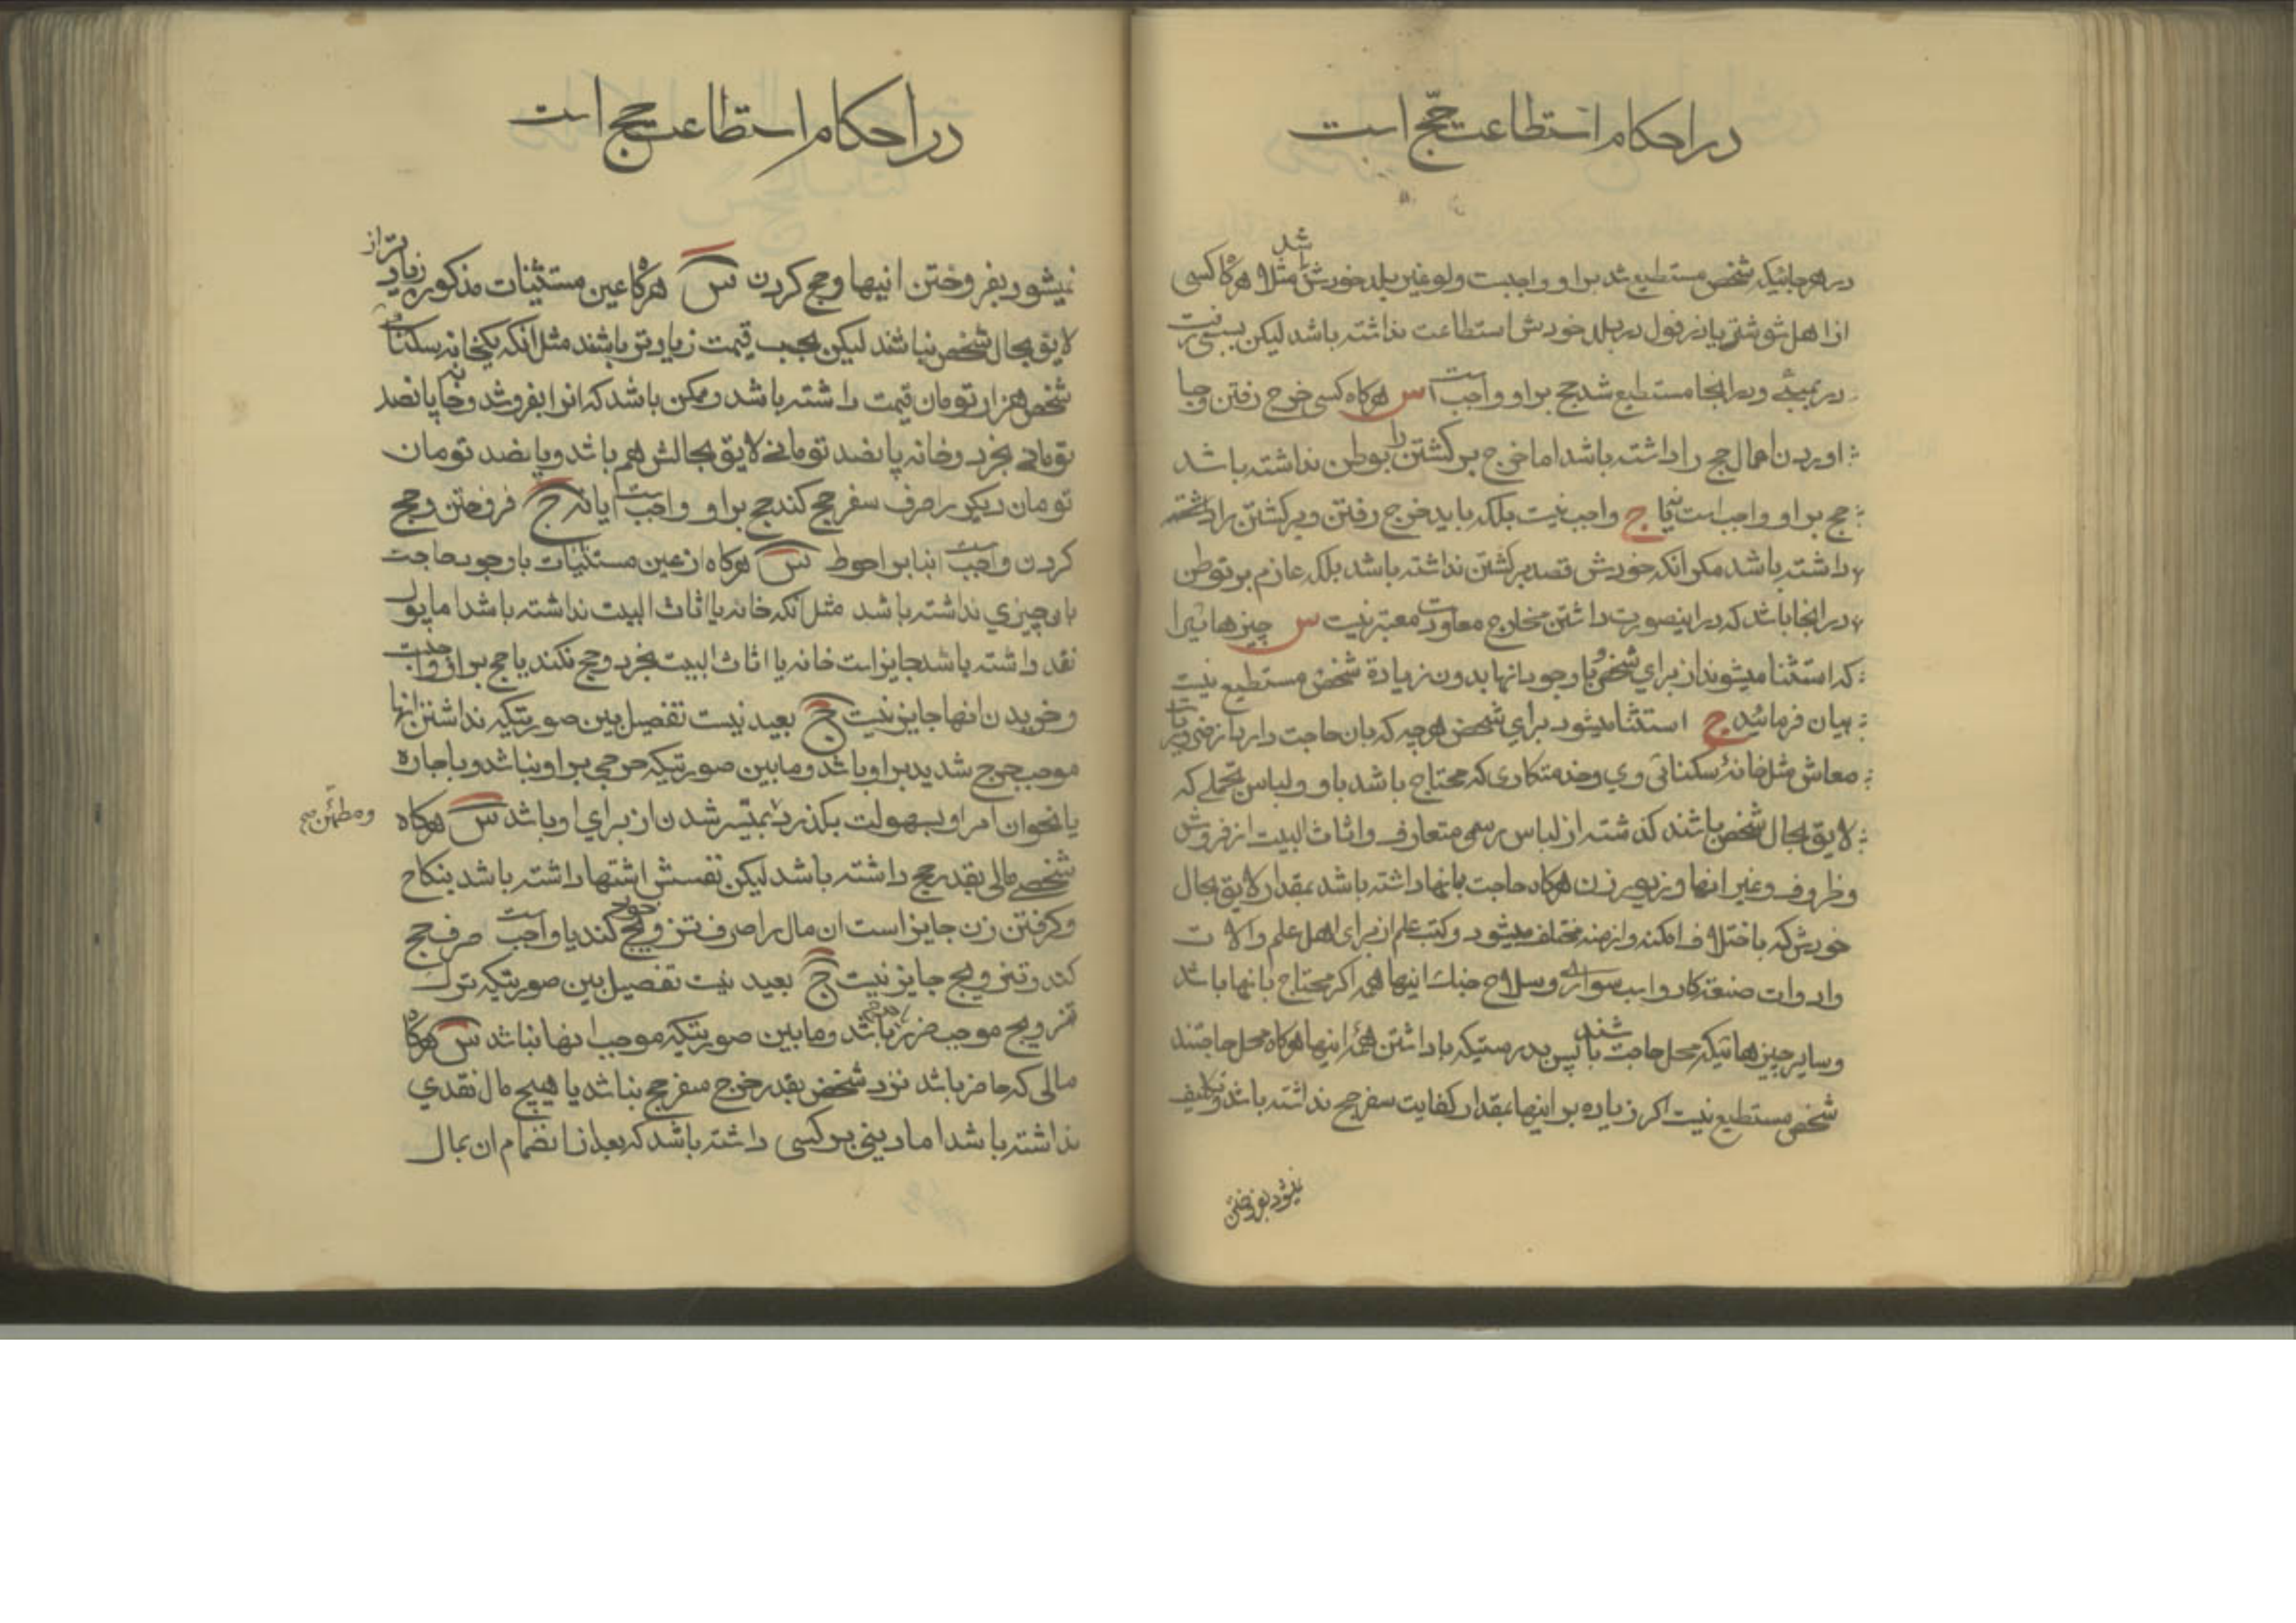 در احکام استطاعت حجّ است
در هر جائیکه شخص مستطیع شد بر او واجبست ولو غیر بلد خودش باشد مثلا هرکاه کسی
از اهل شوشتر یا دزفول در بلد خودش استطاعت نداشته باشد لیکن
در بمبئے و در انجا مستطیع شد حج بر او واجب است س هرکاه کسی خرج رفتن و بجا
اوردن اعمال حج را داشته باشد اما خرج برکشتن را بوطن نداشته باشد
حج بر او واجب است یا نه ج واجب نیست بلکه باید خرج رفتن و برکشتن را داشته
داشته باشد مکر انکه خودش قصد برکشتن نداشته باشد بلکه عازم بر توطن
در انجا باشد که در اینصورت داشتن مخارج معاودت معتبر نیست س چیزهائیرا
که استثنا میشوند از برای شخص و با وجود انها بدون زیادة شخص مستطیع نیست
بیان فرمائید ج استثنا میشود برای شخص هرچه که بان حاجت دارد از ضروریات
معاش مثل خانۀ سکنائی وی و خدمتکاری که محتاج باشد باو و لباس تجملے که
لایق بحال شخص باشند کذشته از لباس رسمی متعارف و اثاث البیت از فروش
و ظروف و غیر انها و زیور زن هرکاه حاجت بانها داشته باشد بمقدار لایق بحال
خودش که باختلاف امکنه و ازمنه مختلف میشود و کتب علم از برای اهل علم و الات
و ادوات صنعتکار و اسب سواری و سلاح جنك اینها همه اکر محتاج بانها باشد
و سایر چیزهائیکه محل حاجت باشند پس بدرستیکه با داشتن همۀ اینها هرکاه محل حاجتند
شخص مستطیع نیست اکر زیاده بر اینها بمقدار کفایت سفر حج نداشته باشد و تکلیف
نمیشود بفروختن
در احکام استطاعت حج است
نمیشود بفروختن اینها و حج کردن س هرکاه عین مستثنیات مذکور زیادتر از
لایق بحال شخص نباشند لیکن بحسب قیمت زیادتر باشند مثل انکه یکخانه سکنائی
شخص هزار تومان قیمت داشته باشد و ممکن باشد که انرا بفروشد و خانه پانصد
تومانی بخرد و خانه پانصد تومانے لایق بحالش هم باشد و پانصد تومان
تومان دیکر را صرف سفر حج کند حج بر او واجب است ایا نه ج فروختن و حج
کردن واجب است بنا بر احوط س هرکاه از عین مستثنیات با وجود حاجت
باو چیزی نداشته باشد مثل انکه خانه یا اثاث البیت نداشته باشد اما پول
نقد داشته باشد جایز است خانه یا اثاث البیت بخرد و حج نکند یا حج بر او واجب است
و خریدن انها جایز نیست ج بعید نیست تفصیل بین صورتیکه نداشتن انها
موجب حرج شدید بر او باشد و مابین صورتیکه حرجی بر او نباشد و باجاره
یا نحو ان امر او بسهولت بکذرد بمتیسر شدن از برای او باشد س هرکاه
و مطمئن صح
شخصے مالی بقدر حج داشته باشد لیکن نفسش اشتها داشته باشد بنکاح
و کرفتن زن جایز است ان مال را صرف تزویج خود کند یا واجب است صرف حج
کند و تزویج جایز نیست ج بعید نیست تفصیل بین صورتیکه ترك
تزویج موجب ضرر باشد و مابین صورتیکه موجب انها نباشد س هرکاه
مالی که حاضر باشد نزد شخص بقدر خرج سفر حج نباشد یا هیچ مال نقدی
نداشته باشد اما دینی بر کسی داشته باشد که بعد از انضمام ان بمال